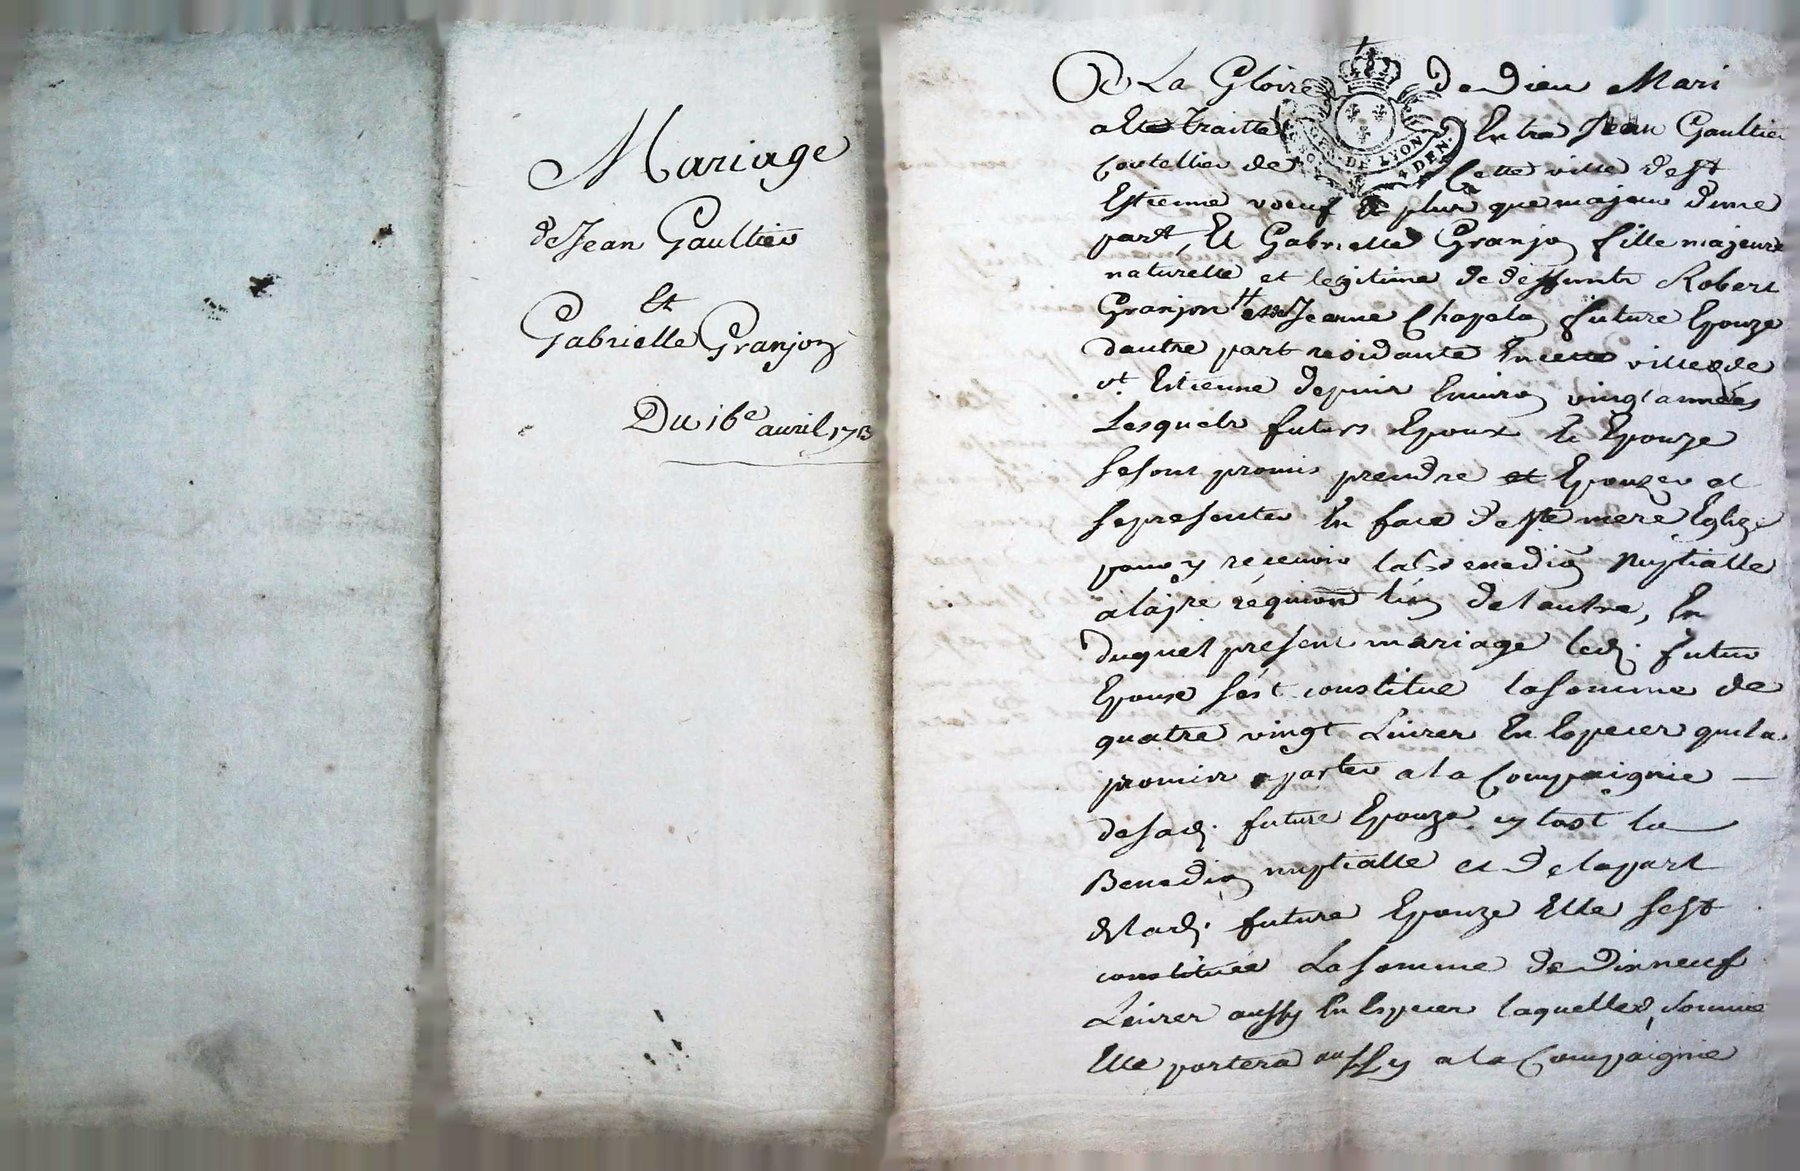 Mariage
de Jean Gaultier
Et
Gabrielle Granjon
Du 16e auril 1713
A La Gloire de Dieu Mari
a este traitte Entre Jean Gaultier
Coutellier de Cette ville de st
Estienne voeuf & plus que majeur d'une
part, Et Gabrielle Granjon fille majeure
naturelle et legitime de deffunts Robert
Granjon et Jeanne Chapelon future Epouze
dautre part residante En cette ville de
st. Estienne depuis Enuiron vingt années
Lesquels futurs Epoux & Epouze
se sont promis prendre et Epouzer et
se presenter En face de ste mere Eglize
pour y receuoir la Benedion Nuptialle
a la pre requion lun de lautre, En
duquel present mariage led. futur
Epoux sest constitue la somme de
quatre vingt Liures En Especes quil a
promis porter a la Compaignie
de sad. future Epouze, tost la
Benedion nuptialle et de la part
de lad. future Epouze Elle sest
constituée La somme de Dix neuf
Liures aussy En Especes laquelle somme
Elle portera aussy a la Compaignie